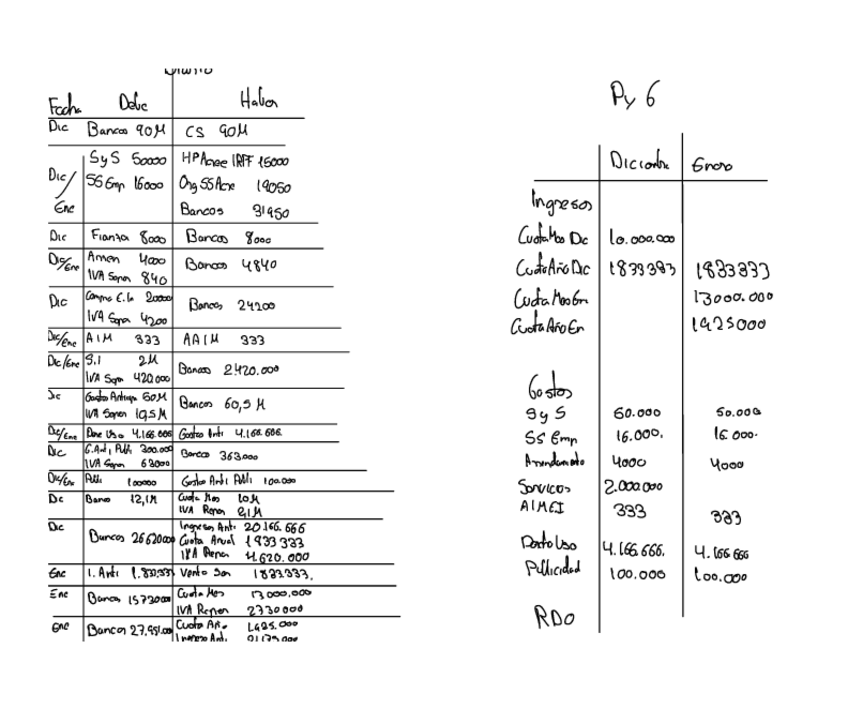 Diario
Fecha Debe Haber
Dic Bancos 90M CS 90M
Dic/Ene SyS 50000 HPAcree IRPF 15000
SS Emp 16000 Org SS Acre 19050
Bancos 31950
Dic Fianza 8000 Bancos 8000
Dic/Ene Arren 4000 Bancos 4840
IVA Sopor 840
Dic Compra E. In 20000 Bancos 24200
IVA Sopor 4200
Dic/Ene AIM 333 AAIM 333
Dic/Ene S.I 2M Bancos 2.420.000
IVA Sopor 420.000
Dic Gastos Antiap 50M Bancos 60,5 M
IVA Sopor 10,5M
Dic/Ene Dere Uso 4.166.666 Gastos Anti 4.166.666.
Dic G.Anti, Publi 300.000 Bancos 363000
IVA Sopor 63000
Dic/Ene Publi 100000 Gastos Anti Publi 100.000
Dic Banco 12,1M Cuota Mes 10M
IVA Reper 2,1M
Dic Bancos 26620000 Ingresos Anti 20.166.666
Cuota Anual 1833333
IVA Reper 4.620.000
Ene I. Anti 1.833.333 Venta Ser 1833.333.
Ene Bancos 15730000 Cuota Mes 13000.000
IVA Reper 2730000
Ene Bancos 27.951.000 Cuota Año 1.925.000
Ingreso Anti. 21175.000
Py G
Diciembre Enero
Ingresos
Cuota Mes Dic 10.000.000
Cuota Año Dic 1833333 1833333
Cuota Mes En 13000.000
Cuota Año En 1925000
Gastos
SyS 50.000 50.000
SS Emp 16.000. 16.000.
Arrendamiento 4000 4000
Servicios 2.000.000
AIMEI 333 333
Derecho Uso 4.166.666. 4.166 666
Publicidad 100.000 100.000
RDO